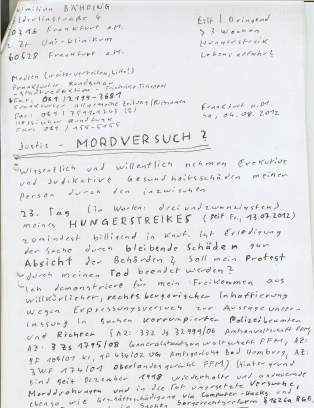 Maximilian BÄHRING
Hölderlinstraße 4
60316 Frankfurt a.M.
z. Zt. Uni-klinikum
60528 Frankfurt a.M.
Eilt / Dringend
> 3 Wochen
Hungerstreik
Lebensgefahr!
Medien (weiterverteilen, bitte!)
Frankfurter Rundschau
Stadtredaktion
Fax: 069 / 2199-3681
Frankfurter Allgemeine Zeitung
Fax: 069 /
Hessischer Rundfunk
Fax: 069 / 155-5055
Frankfurt a.M.
Sa, 04.08.2012
Justiz - MORDVERSUCH ?
Wissentlich und willentlich nehmen Exekutive
und Judikative Gesundheitsschäden meiner
person durch den inzwischen
23. Tag (in Worten: dreiundzwanzigsten)
meines HUNGERSTREIKES (seit Fr, 13.07.2012)
zumindest billigend in Kauf. Ist Erledigung
der Sache durch bleibende Schäden gar
Absicht der Behörden? Soll mein Protest
durch meinen Tod beendet werden?
Ich demonstriere für mein Freikommen aus
willkürlicher, rechtsbeugerischer Inhaftierung
wegen Erpressungsversuch zur Aussageunter-
lassung in Sachen korrumpierter Polizeibeamten
und Richtern (AZ: 332 Js 32999/06 Amtsanwaltschaft FFM,
AZ: 3 Zs 1795/08 Generalstaatsanwaltschaft FFM, AZ:
9F 104/01 KI, 9F 434/02 UG Amtsgericht Bad Homburg, AZ:
3 WF 174/01 Oberlandesgericht FFM) Hintergrund
sind seit Dezember 1998 wiederholte und andauernde
Morddrohungen und in die Tat umgesetzte Versuche,
ebenso wie Geschäftsschädigung via Computer-Hacks und
in Sachen Sorgerechtsreform § 1626a BGB